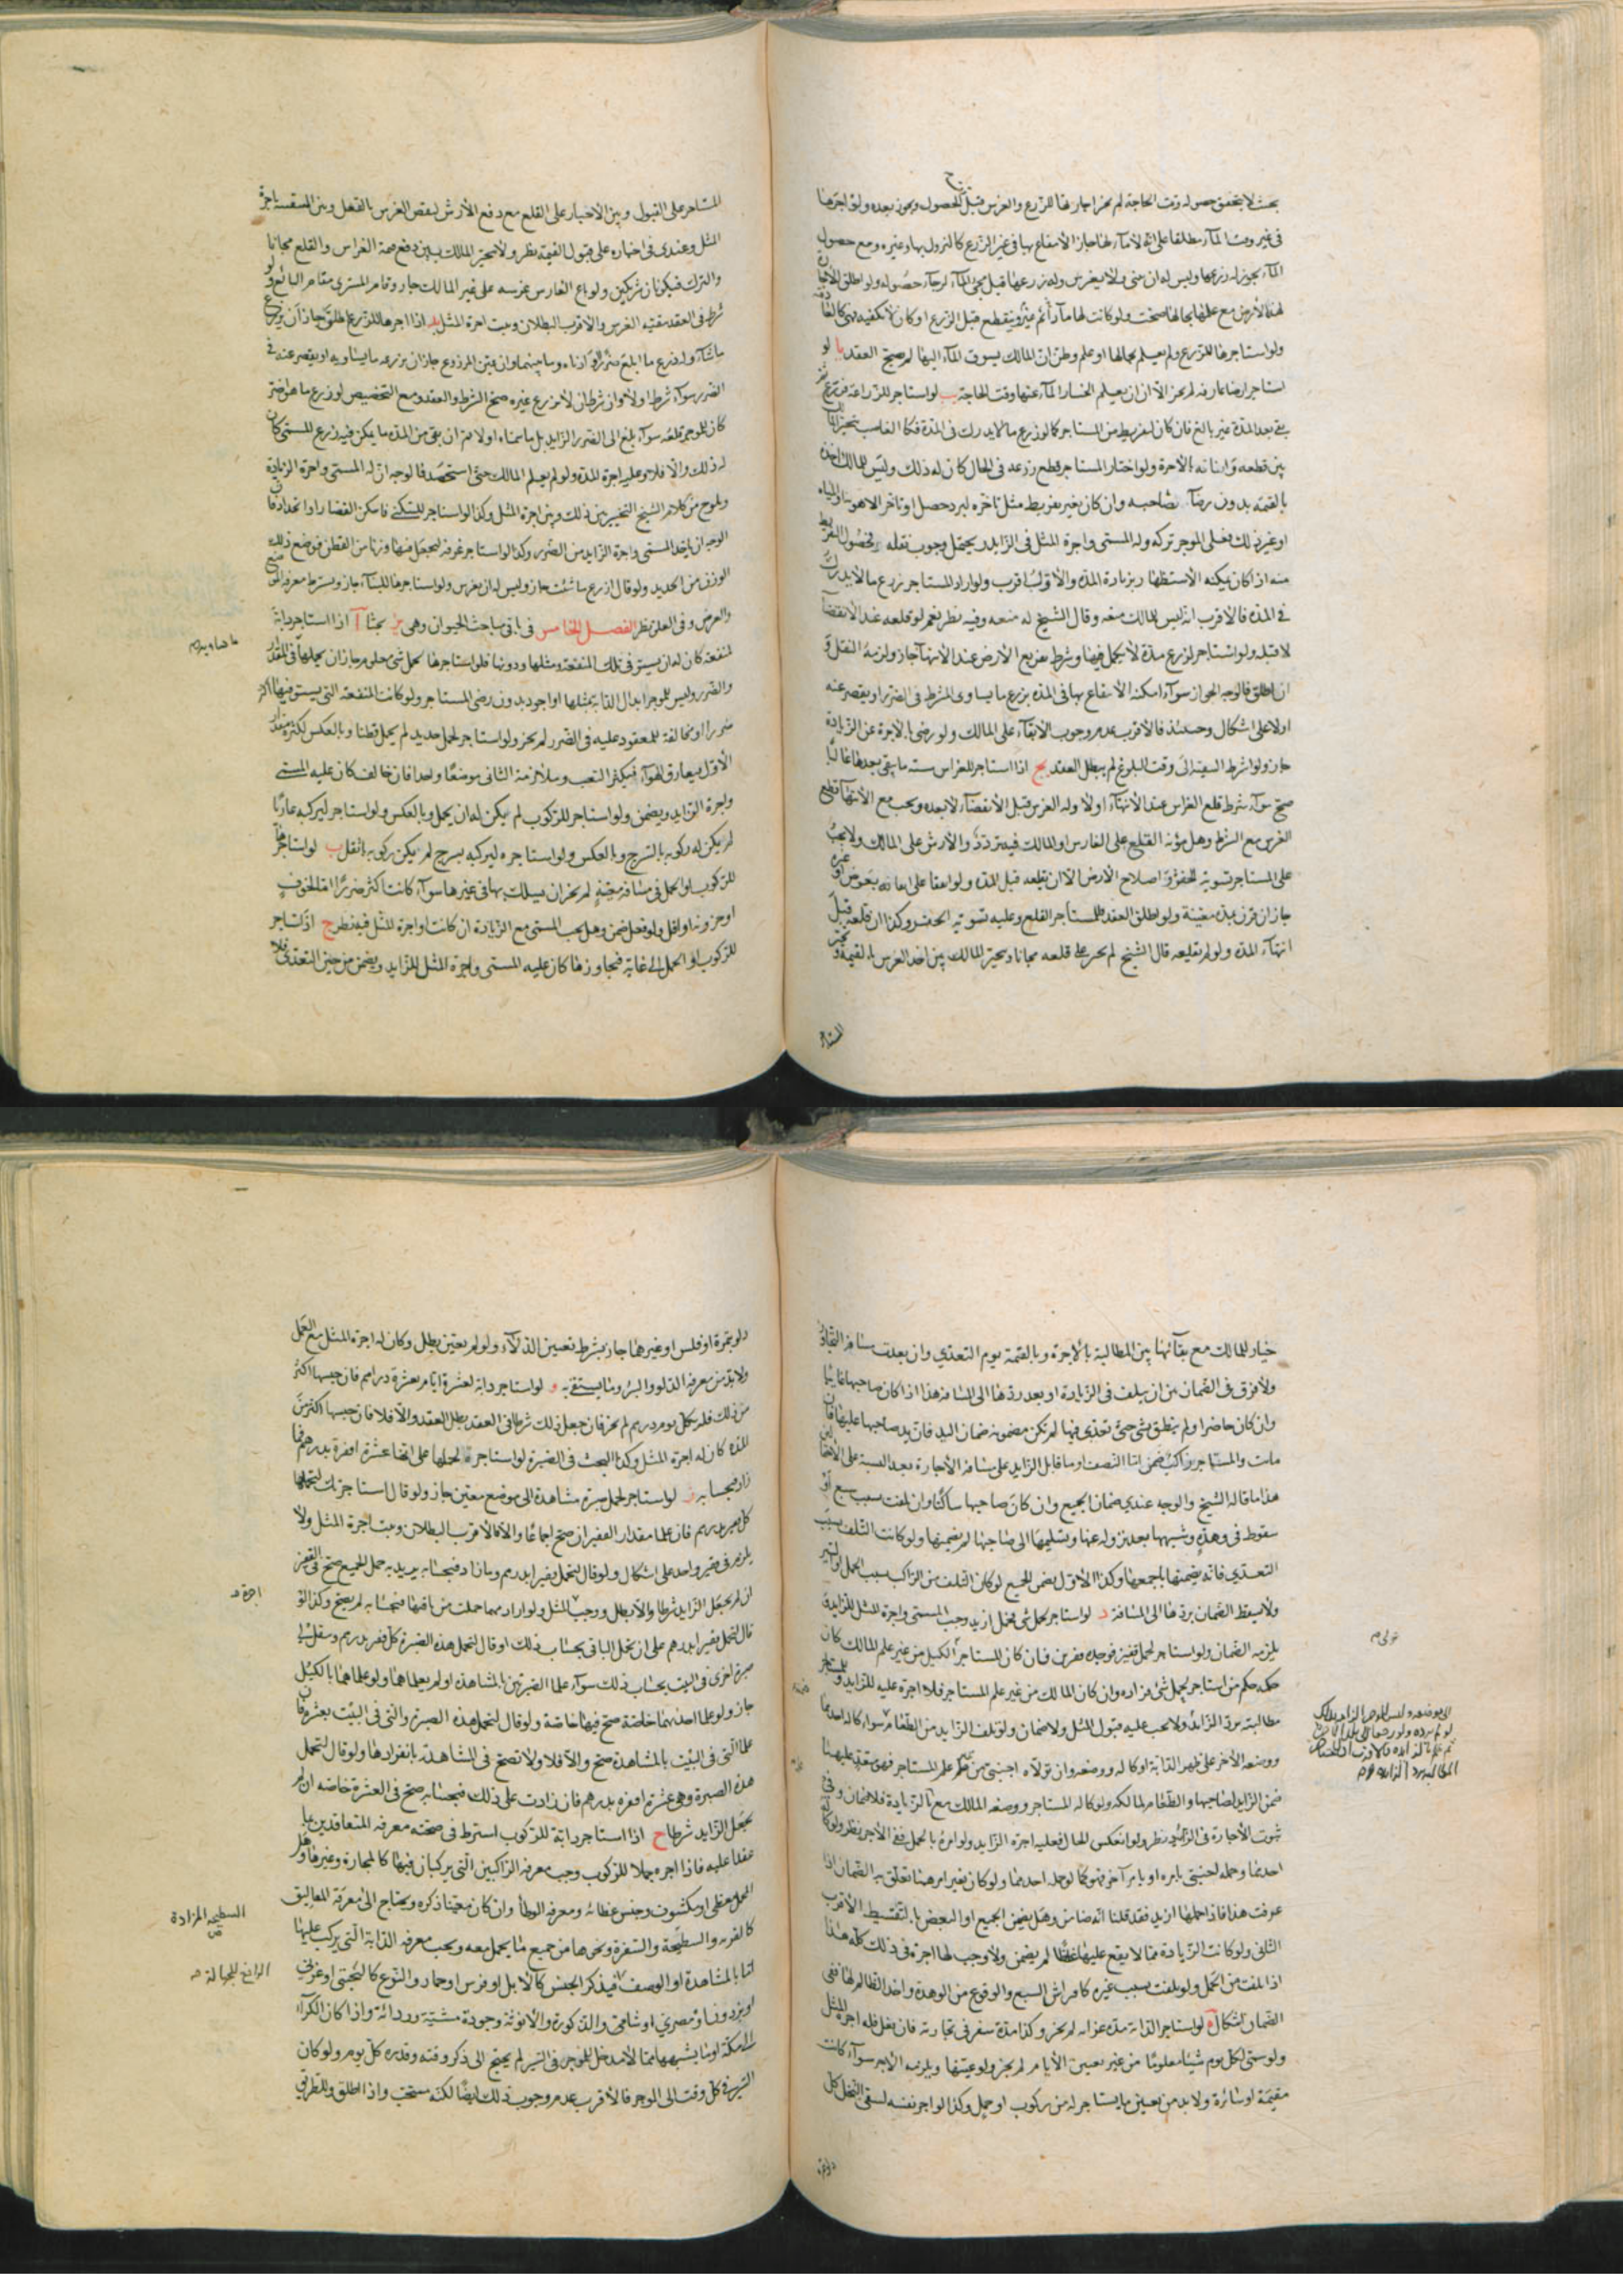 بحيث لا يتحقق حصوله وقت الحاجة لم يجز اجارتها للزرع والغرس قبل الحصول ويجوز بعده ولو اجرها
في غير وقت الماء مطلقا على انه لا ماء لها جاز الانتفاع بها في غير الزرع كالنزول بها وغيره ومع حصول
الماء يجوز له زرعها وليس له ان يبني ولا يغرس وله زرعها قبل مجئ الماء لرجاء حصوله ولو اطلق
هذه الارض مع علمها بحالها صحت ولو كانت لها ماء دائم ينقطع قبل الزرع او كان لا يكفيه فهي كالتي
ولو استاجرها للزرع ولم يعلم بحالها او علم وظن ان المالك يسوق الماء اليها لم يصح العقد يا لو
استاجر ارضا غارقة لم يجز الا ان يعلم انحسار الماء عنها وقت الحاجة يب لو استاجر للزراعة فزرع
بقي بعد المدة غير بالغ فان كان لتفريط من المستاجر كما لو زرع ما لا يدرك في المدة فكالغاصب يتخير
بين قطعه وابقائه بالاجرة ولو اختار المستاجر قطع زرعه في الحال كان له ذلك وليس للمالك اخذه
بالقيمة بدون رضا صاحبه وان كان بغير تفريط مثل تاخره لبرد حصل او تاخر الاهوية او المياه
او غير ذلك فعلى الموجر تركه وله المسمى واجرة المثل في الزايد ويحتمل وجوب نقله لحصول التفريط
منه اذ كان يمكنه الاستظهار بزيادة المدة والاول اقرب ولو اراد المستاجر زرع ما لا يدرك
في المدة فالاقرب انه ليس للمالك منعه وقال الشيخ له منعه وفيه نظر نعم لو قلعه عند الانقضاء
لا قبله ولو استاجر لزرع مدة لا يكمل فيها وشرط تفريغ الارض عند الانتهاء جاز ولزمه النقل و
ان اطلق فالوجه الجواز سواء امكنه الانتفاع بها في المدة بزرع ما يساوي المشترط في الضرر او يقصر عنه
او لا على اشكال وحينئذ فالاقرب عدم وجوب الابقاء على المالك ولو رضي بالاجرة عن الزيادة
جاز ولو شرط التبقية الى وقت البلوغ لم يبطل العقد يج اذا استاجر للغراس سنة ما يبقى بعدها غالبا
صح سواء شرط قلع الغراس عند الانتهاء او لا وله الغرس قبل الانقضاء لا بعده ويجب مع الانتهاء قلع
الغرس مع الشرط وهل مؤنة القلع على الغارس او المالك فيه تردد ولا ارش على المالك ولا يجب
على المستاجر تسوية الحفر واصلاح الارض الا ان يقلعه قبل المدة ولو اتفقا على ابقائه بعوض او غيره
جاز ان قرن بمدة معينة ولو اطلق العقد فللمستاجر القلع وعليه تسوية الحفر وكذا ان قلعه قبل
انتهاء المدة ولو لم يقلعه قال الشيخ لم يجبر على قلعه مجانا ويتخير المالك بين اخذ الغرس بالقيمة و
المستاجر على القبول وبين الاجبار على القلع مع دفع الارش لنقص الغرس بالقلع وبين التبقية باجرة
المثل وعندي في اجباره على قبول القيمة نظر ولا يتخير المالك بين دفع قيمة الغراس والقلع مجانا
والترك فيكونان شريكين ولو باع الغارس غرسه على غير المالك جاز وقام المشتري مقام البائع ولو
شرط في العقد تبقية الغرس فالاقرب البطلان ويثبت اجرة المثل يد اذا اجرها للزرع واطلق جاز ان يزرع
ما شاء وله زرع ما ابلغ ضررا وادناه وما بينهما وان عين المزروع جاز ان يزرعه وما يساويه او يقصر عنه في
الضرر سواء شرط او لا وان شرط ان لا يزرع غيره صح الشرط والعقد ومع التخصيص لو زرع ما هو اضر
كان للموجر قلعه سواء بلغ الى الضرر الزايد بل ما سماه او لا ثم ان بقي من المدة ما يمكن فيه زرع المسمى كان
له ذلك والا فلا وعليه اجرة المدة ولو لم يعلم المالك حتى استحصد فالوجه ان له المسمى واجرة الزيادة
ويلوح من كلام الشيخ التخيير بين ذلك وبين اجرة المثل وكذا لو استاجر للسكنى فاسكن القصار او الحداد
الوجه ان ياخذ المسمى واجرة الزايد من الضرر وكذا لو استاجر غرفة ليجعل فيها وزنا من القطن فوضع ذلك
الوزن من الحديد ولو قال ازرع ما شئت جاز وليس له ان يغرس ولو استاجرها للبناء جاز ويشترط معرفة
والعرض وفي العلو نظر الفصل الخامس في باقي مباحث الحيوان وهي بحثا آ اذا استاجر دابة
لمنفعة كان له ان يستوفي تلك المنفعة ومثلها ودونها فلو استاجرها لحمل شئ معلوم جاز ان يحملها في المقدار
والضرر وليس للموجر ابدال الدابة بمثلها او اجود بدون رضى المستاجر ولو كانت المنفعة التي يستوفيها اكثر
ضررا او مخالفة للمعقود عليه في الضرر لم يجز ولو استاجر لحمل حديد لم يحمل قطنا وبالعكس لكثرة
الاول بمعارف الهواء فيكثر التعب وملازمة الثاني موضعا واحدا فان خالف كان عليه المسمى
واجرة الزايد ويضمن ولو استاجر للركوب لم يكن له ان يحمل وبالعكس ولو استاجر ليركبه عاريا
لم يكن له ركوبه بالسرج وبالعكس ولو استاجره ليركبه بسرج لم يكن ركوبه باثقل ب لو استاجر
للركوب او الحمل في مسافة معينة لم يجز ان يسلك بها في غيرها سواء كانت اكثر ضررا او
او حزونة او اقل ولو فعل ضمن وهل يجب المسمى مع الزيادة ان كانت او اجرة المثل فيه نظر ج اذا استاجر
للركوب او الحمل الى غاية فتجاوزها كان عليه المسمى واجرة المثل للزايد ويضمن من حين التعدي
خيار للمالك مع بقائها بين المطالبة بالاجرة وبالقيمة يوم التعدي وان بعدت مسافة التجاوز
ولا فرق في الضمان بين ان يتلف في الزيادة او بعد ردها الى المسافة هذا اذا كان صاحبها غايبا
وان كان حاضرا ولم ينطق بشئ حتى تعدى فيها لم تكن مضمونة ضمان اليد فان يد صاحبها عليها
ماتت والمستاجر راكب ضمن اما النصف او ما قابل الزايد على مسافة الاجارة بعد القسمة على
هذا ما قاله الشيخ والوجه عندي ضمان الجميع وان كان صاحبها ساكتا وان تلفت بسبب سبع او
سقوط في وهدة وشبهها بعد نزوله عنها وتسليمها الى صاحبها لم يضمنها ولو كانت التلف بسبب
التعدي فانه يضمنها باجمعها وكذا الاول يضمن الجميع لو كان التلف من الراكب بسبب الحمل او السير
ولا يسقط الضمان بردها الى المسافة د لو استاجر لحمل شئ فحمل ازيد وجب المسمى واجرة المثل للزايد و
يلزمه الضمان ولو استاجر لحمل قفيز فوجده قفيزين فان كان المستاجر الكيل من غير علم المالك كان
حكمه حكم من استاجر لحمل شئ فزاده وان كان المالك من غير علم المستاجر فلا اجرة عليه للزايد
مطالبته برد الزايد ولا يجب عليه قبول المثل ولا ضمان ولو تلف الزايد من الطعام سواء كاله احدهما
ووضعه الاخر على ظهر الدابة او كاله ووضعه وان تولاه اجنبي من غير علم المستاجر فهو متعد عليهما
ضمن الزايد لصاحبها والطعام لمالكه ولو كاله المستاجر ووضعه المالك مع الزيادة فلا ضمان وفي
ثبوت الاجارة في الزايد نظر ولو انعكس الحال فعليه اجرة الزايد ولو امره بالحمل ففي الاجر نظر ولو
احدهما وحمله اجنبي بامره او بامر آخر فهو كما لو حمله احدهما ولو كان بغير امرهما تعلق به الضمان اذا
عرفت هذا فاذا حملها ازيد فقد قلنا انه ضامن وهل يضمن الجميع او البعض بالتقسيط الاقرب
الثاني ولو كانت الزيادة مما لا يقع عليها غالبا لم يضمن ولا وجب لها اجرة في ذلك كله هذا
اذا تلفت من الحمل ولو تلفت بسبب غيره كافتراس السبع والوقوع من الوهدة واخذ الظالم لها ففي
الضمان اشكال ه لو استاجر الدابة مدة غزاته لم يجز وكذا مدة سفره في تجارته فان فعل فله اجرة المثل
ولو سمى لكل يوم شيئا معلوما من غير تعيين الايام لم يجز ولو عينها ويلزمه الاجر سواء كانت
مقيمة او سائرة ولا بد من تعيين ما يستاجر له من ركوب او حمل وكذا لو اجر نفسه لسقي النخل كل
دلو بتمرة او فلس او غيرهما جاز بشرط تعيين الدلاء ولو لم يعين بطل وكان له اجرة المثل مع العمل
ولا بد من معرفة الدلو والبئر وما يستقى به و لو استاجر دابة لعشرة ايام بعشرة دراهم فان حبسها اكثر
من ذلك فله بكل يوم درهم لم يجز فان جعل ذلك شرطا في العقد بطل العقد والا فلا فان حبسها اكثر من
المدة كان له اجرة المثل وكذا البحث في الصبرة لو استاجره لحملها على انها عشرة اقفزة بدرهم فما
زاد فبحسابه ز لو استاجر لحمل صبرة مشاهدة الى موضع معين جاز ولو قال استاجرتك لتحملها
كل قفيز بدرهم فان علما مقدار القفيزان صح اجماعا والا فالاقرب البطلان ويثبت اجرة المثل ولا
يلزمه في قفيز واحد على اشكال ولو قال لتحمل قفيزا بدرهم وما زاد فبحسابه يريد به حمل الجميع صح في القفيز
ان لم يجعل الزايد شرطا والا بطل ووجب المثل ولو اراد مهما حملت من باقيها فبحسابه لم يصح وكذا لو
قال لتحمل قفيزا بدرهم على ان تحمل الباقي بحساب ذلك او قال لتحمل هذه الصبرة كل قفيز بدرهم وتنقل لي
صبرة اخرى في البيت بحساب ذلك سواء علما الصبرتين بالمشاهدة او لم يعلماهما ولو علماهما بالكيل
جاز ولو علما احداهما خاصة صح فيها خاصة ولو قال لتحمل هذه الصبرة والتي في البيت بعشرة فان
علما التي في البيت بالمشاهدة صح والا فلا ولا تصح في المشاهدة بانفرادها ولو قال لتحمل
هذه الصبرة وهي عشرة اقفزة بدرهم فان زادت على ذلك فبحسابه صح في العشرة خاصة ان لم
يجعل الزايد شرطا ح اذا استاجر دابة للركوب اشترط في صحته معرفة المتعاقدين بما
عقدا عليه فاذا اجره جملا للركوب وجب معرفة الراكبين التي يركبان فيها كالمحارة وغيرها وهل
المحمل مغطى او مكشوف وجنس غطائه ومعرفة الوطاء وان كان معينا ذكره ويحتاج الى معرفة المعاليق
كالقربة والسطيحة والسفرة ونحوها من جميع ما يحمل معه ويجب معرفة الدابة التي يركب عليها
اما بالمشاهدة او الوصف فيذكر الجنس كالابل او فرس او حمار والنوع كالبختي او عربي
او برذون او مصري او شامي والذكورة والانوثة وجودة مشيته ورداءته واذا كان الكراء
الى مكة او ما يشبهها مما لا مدخل للموجر في السير لم يحتج الى ذكر وقته وقدره كل يوم ولو كان
السير في كل وقت الى الموجر فالاقرب عدم وجوب ذلك ايضا لكنه مستحب واذا اطلق وللطريق
السطيحة المزادة